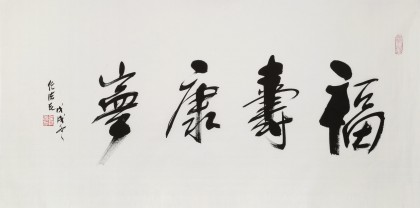 福壽康寧
戊戌